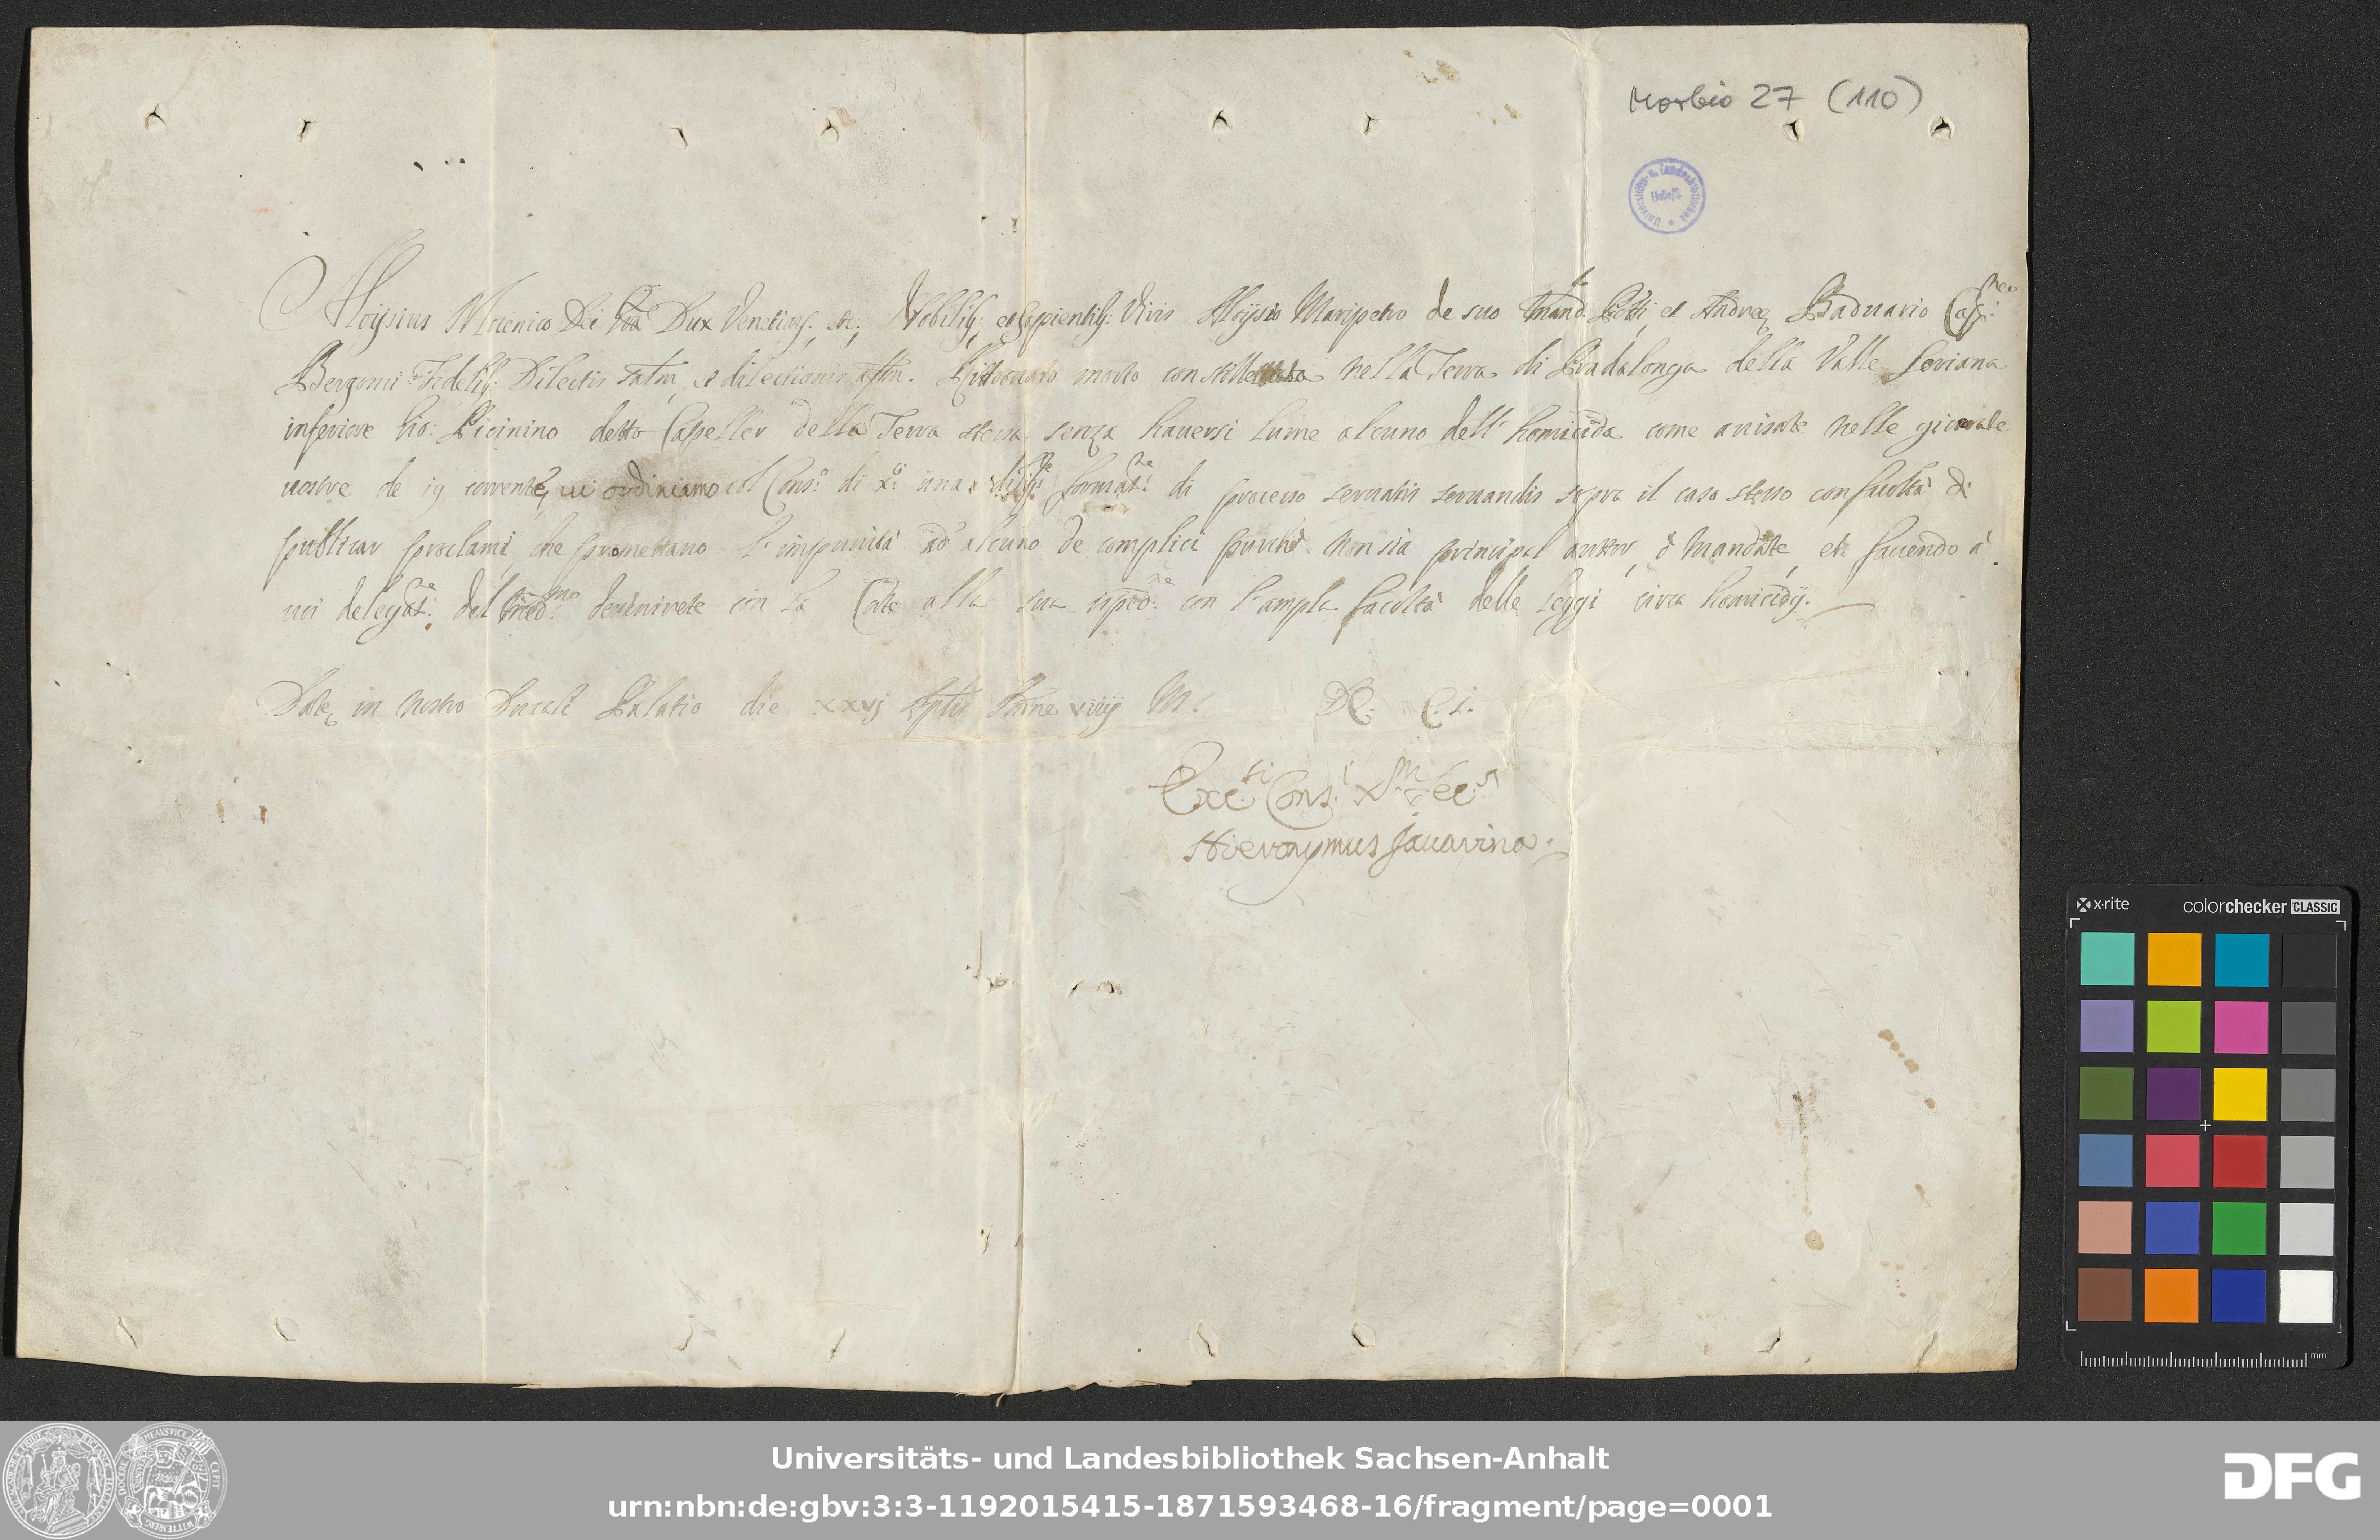 Morbio 27 (110)
Universitäts- u. Landesbibliothek
Halle/S
Aloysius Mocenico Dei Gra Dux Venetiarũ; etc; Nobilibq; et Sapientibq: Viris Aloysio Maripetro de suo Mand. Potti, et Andreæ Baduario Cap:neo
Bergomi Fidelibq: Dilectis Saltm, et dilectionis affm. Ritrouato morto con stillettata nella Terra di Pradalonga della Valle Seriana
inferiore Gio: Picinino detto Capeller della Terra stessa senza hauersi lume alcuno dell' homicida come auisate nelle giurate
uostre de 19 corrente, ui ordiniamo col Cons.o di X.ci una dilig.te format.ne di processo seruatis seruandis sopra il caso stesso con facoltà di
publicar proclami, che promettano l' impunità ad alcuno de complici purchè non sia principal auttor, ò mandante, et facendo à
uoi delegat.ne del med.mo deuenirete con la Corte alla sua isped.ne con l' ampla facoltà delle leggi circa homicidij.
Datæ in nostro Ducali Palatio die xxvj Sptis Indne viiij M. DC. C.I.
Exc.ti Cons.i X.m Sec.s
Hieronymus Jauarina.
x·rite colorchecker CLASSIC
mm
Universitäts- und Landesbibliothek Sachsen-Anhalt
urn:nbn:de:gbv:3:3-1192015415-1871593468-16/fragment/page=0001
DFG